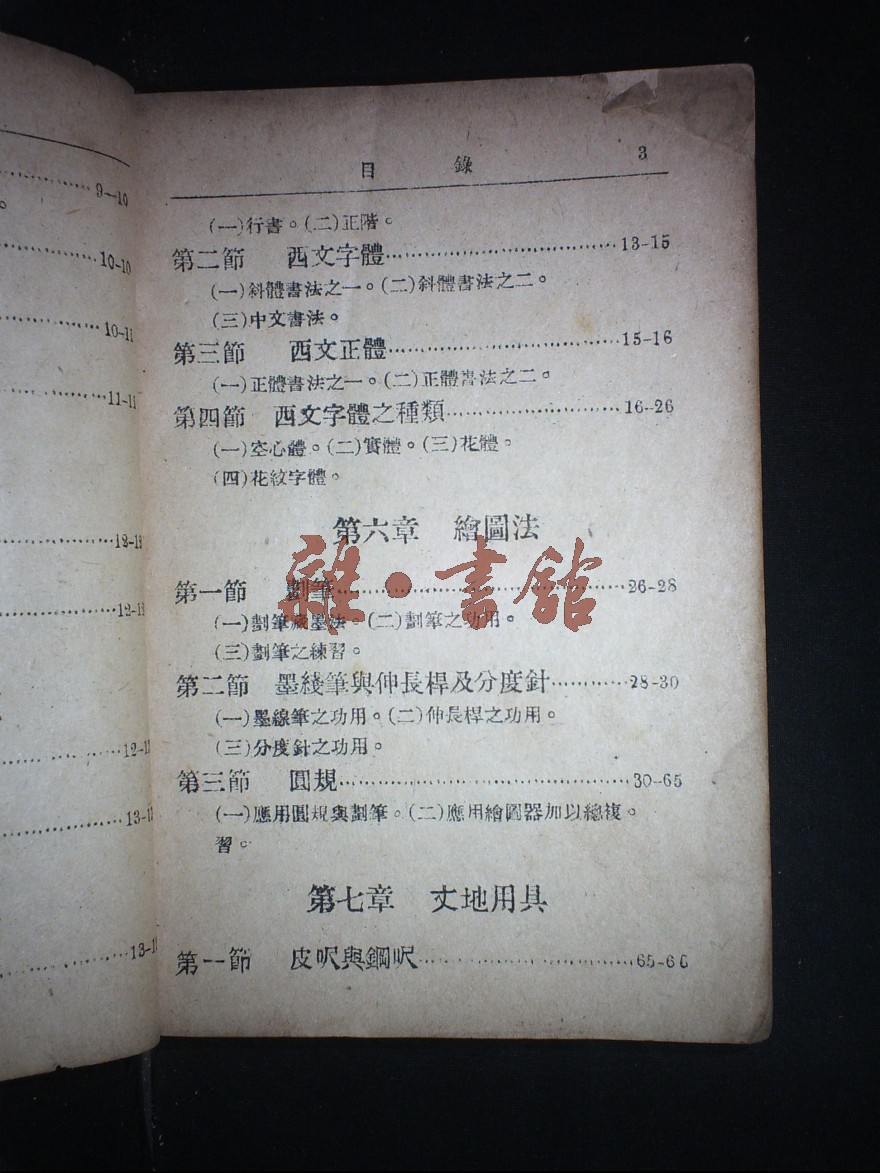 9—10
。
10-10
10-11
11-11
12-1
12-1
12-1
13-1
13-1
目 錄 3
(一)行書。(二)正階。
第二節 西文字體……………………13-15
(一)斜體書法之一。(二)斜體書法之二。
(三)中文書法。
第三節 西文正體……………………15-16
(一)正體書法之一。(二)正體書法之二。
第四節 西文字體之種類………………16-26
(一)空心體。(二)實體。(三)花體。
(四)花紋字體。
第六章 繪圖法
雜·書館
第一節 劃筆…………………………26-28
(一)劃筆藏墨法。(二)劃筆之功用。
(三)劃筆之練習。
第二節 墨綫筆與伸長桿及分度針…………28-30
(一)墨線筆之功用。(二)伸長桿之功用。
(三)分度針之功用。
第三節 圓規…………………………30-65
(一)應用圓規與劃筆。(二)應用繪圖器加以總複。
習。
第七章 丈地用具
第一節 皮呎與鋼呎…………………65-66